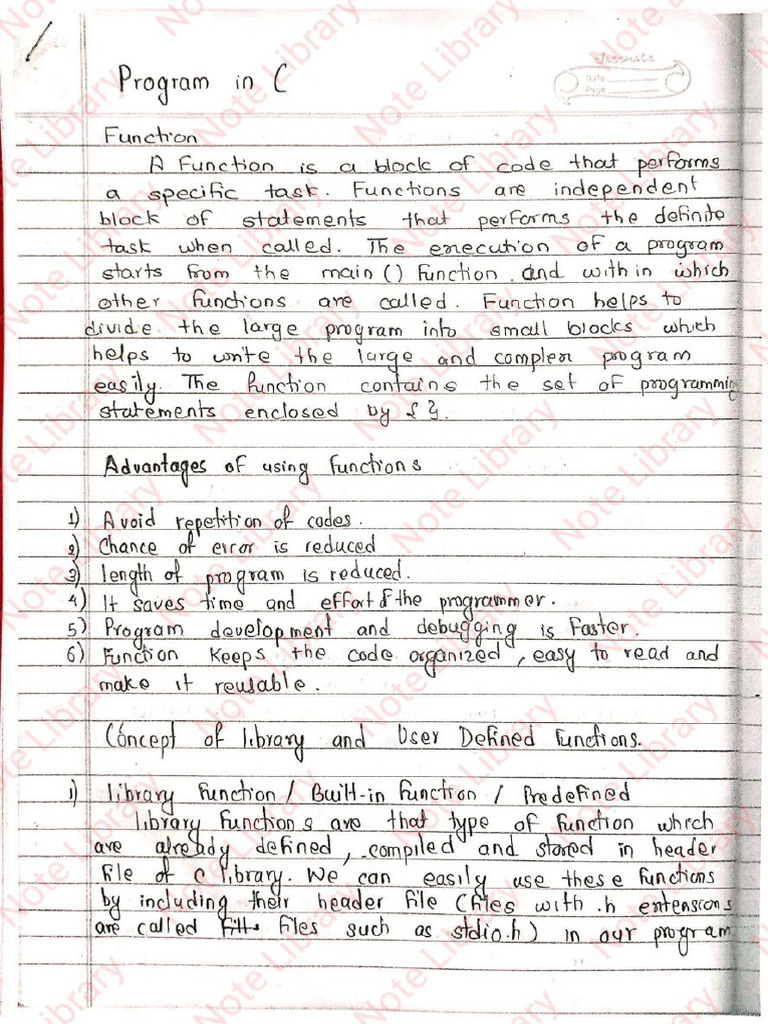 Program in C
classmate
Date
Page
Function
A Function is a block of code that performs
a specific task. Functions are independent
block of statements that performs the definite
task when called. The execution of a program
starts from the main () function and within which
other functions are called. Function helps to
divide the large program into small blocks which
helps to write the large and complex program
easily. The function contains the set of programming
statements enclosed by { }.
Advantages of using functions
1) Avoid repetition of codes.
2) Chance of error is reduced
3) length of program is reduced.
4) It saves time and effort of the programmer.
5) Program development and debugging is Faster.
6) Function keeps the code organized, easy to read and
make it reusable.
Concept of library and User Defined Functions.
1) library Function / Built-in function / Predefined
library functions are that type of function which
are already defined, compiled and stored in header
file of c library. We can easily use these functions
by including their header file (files with .h extensions
are called files such as stdio.h) in our program
Note Library